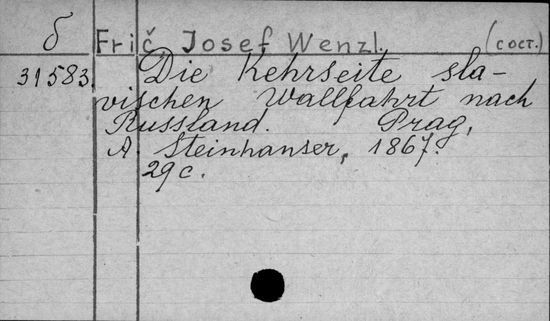 б Frič, Josef Wenzl. (сост.)
31583 Die Kehrseite sla-
vischen Wallfahrt nach
Russland. Prag,
A. Steinhanser, 1867.
29 c.